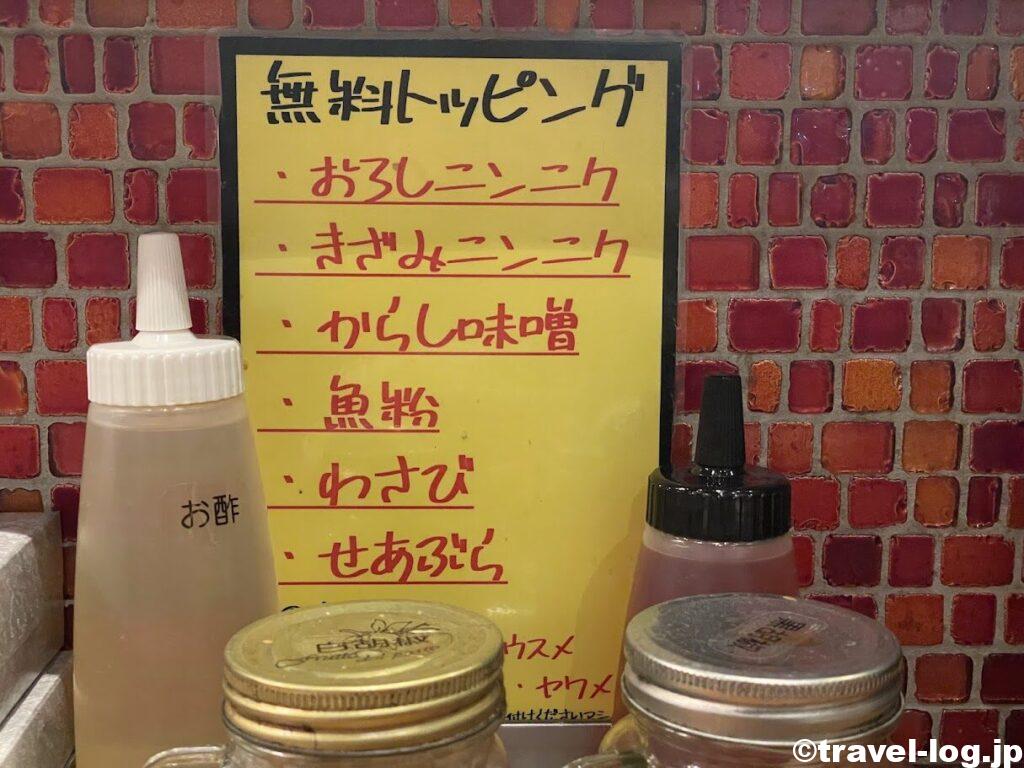 無料トッピング
・おろしニンニク
・きざみニンニク
・からし味噌
・魚粉
・わさび
・せあぶら
ウスメ
・ヤワメ
付けくださいマシ
お酢
白胡椒
©travel-log.jp